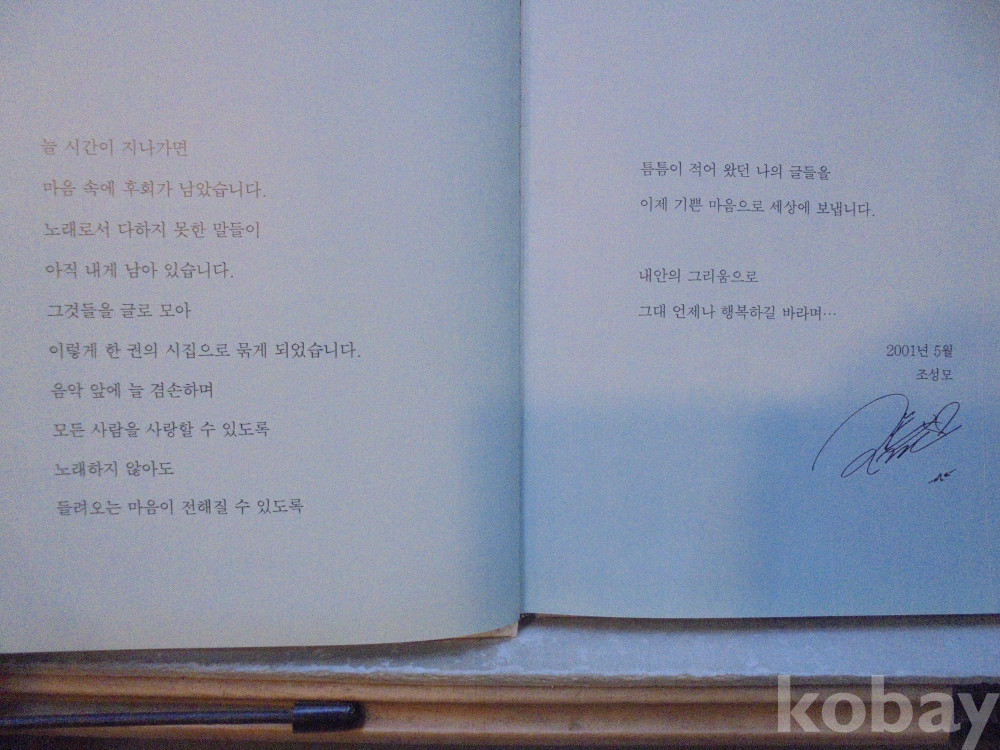 늘 시간이 지나가면
마음 속에 후회가 남았습니다.
노래로서 다하지 못한 말들이
아직 내게 남아 있습니다.
그것들을 글로 모아
이렇게 한 권의 시집으로 묶게 되었습니다.
음악 앞에 늘 겸손하며
모든 사람을 사랑할 수 있도록
노래하지 않아도
들려오는 마음이 전해질 수 있도록
틈틈이 적어 왔던 나의 글들을
이제 기쁜 마음으로 세상에 보냅니다.
내안의 그리움으로
그대 언제나 행복하길 바라며…
2001년 5월
조성모
kobay